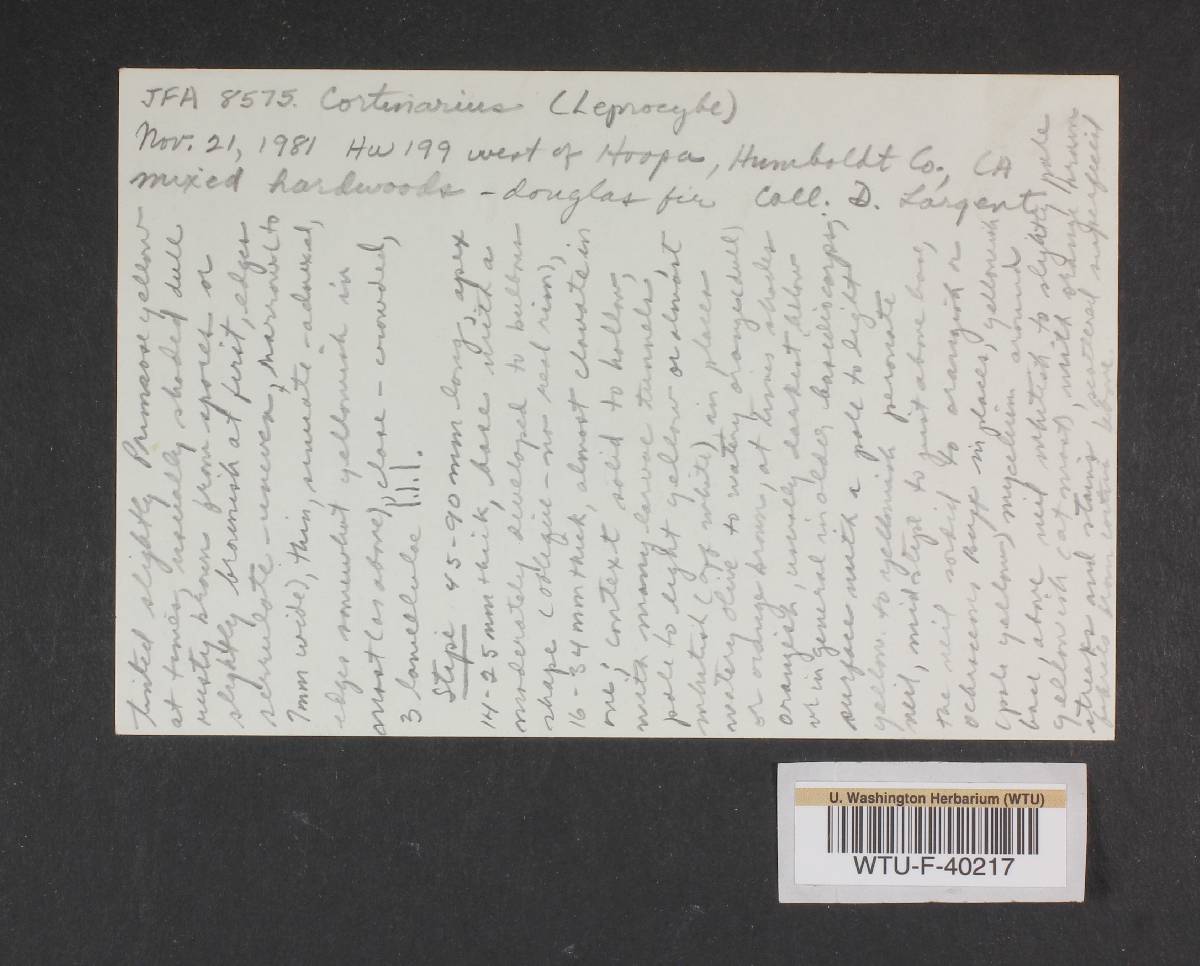 JFA 8575. Cortinarius (Leprocybe)
Nov. 21, 1981 HW 199 west of Hoopa, Humboldt Co., CA
mixed hardwoods - douglas fir Coll. D. Largent
tinted slightly Primrose yellow
at times, usually shaded dull
rusty brown from spores or
slightly brownish at first, edges
serrulate - uneven, narrow (to
7mm wide), thin, sinuate - adnexed,
edges somewhat yellowish in
most (as above), close - crowded,
3 lamellulae
Stipe 45-90 mm long, apex
14-25 mm thick, base with a
moderately developed to bulbous
shape (oblique - no real rim),
16-34 mm thick, almost clavate in
one; context solid to hollow,
with many larvae tunnels,
pale to light yellow or almost
whitish (off white), in places
watery olive to watery orange (dull)
or orange brown, at times shades
orangish, usually darkest below
or in general in older basidiocarps;
surface with a pale to light
yellow to yellowish peronate
veil, midstipe to just above base,
the veil sordid to orangish or
ochraceous buff in places, yellowish
(pale yellow) mycelium around
base above veil whitish to slightly pale
yellowish (at most), with orange brown
streaks and stains, scattered superficial
fibrils from cortina above
U. Washington Herbarium (WTU)
WTU-F-40217